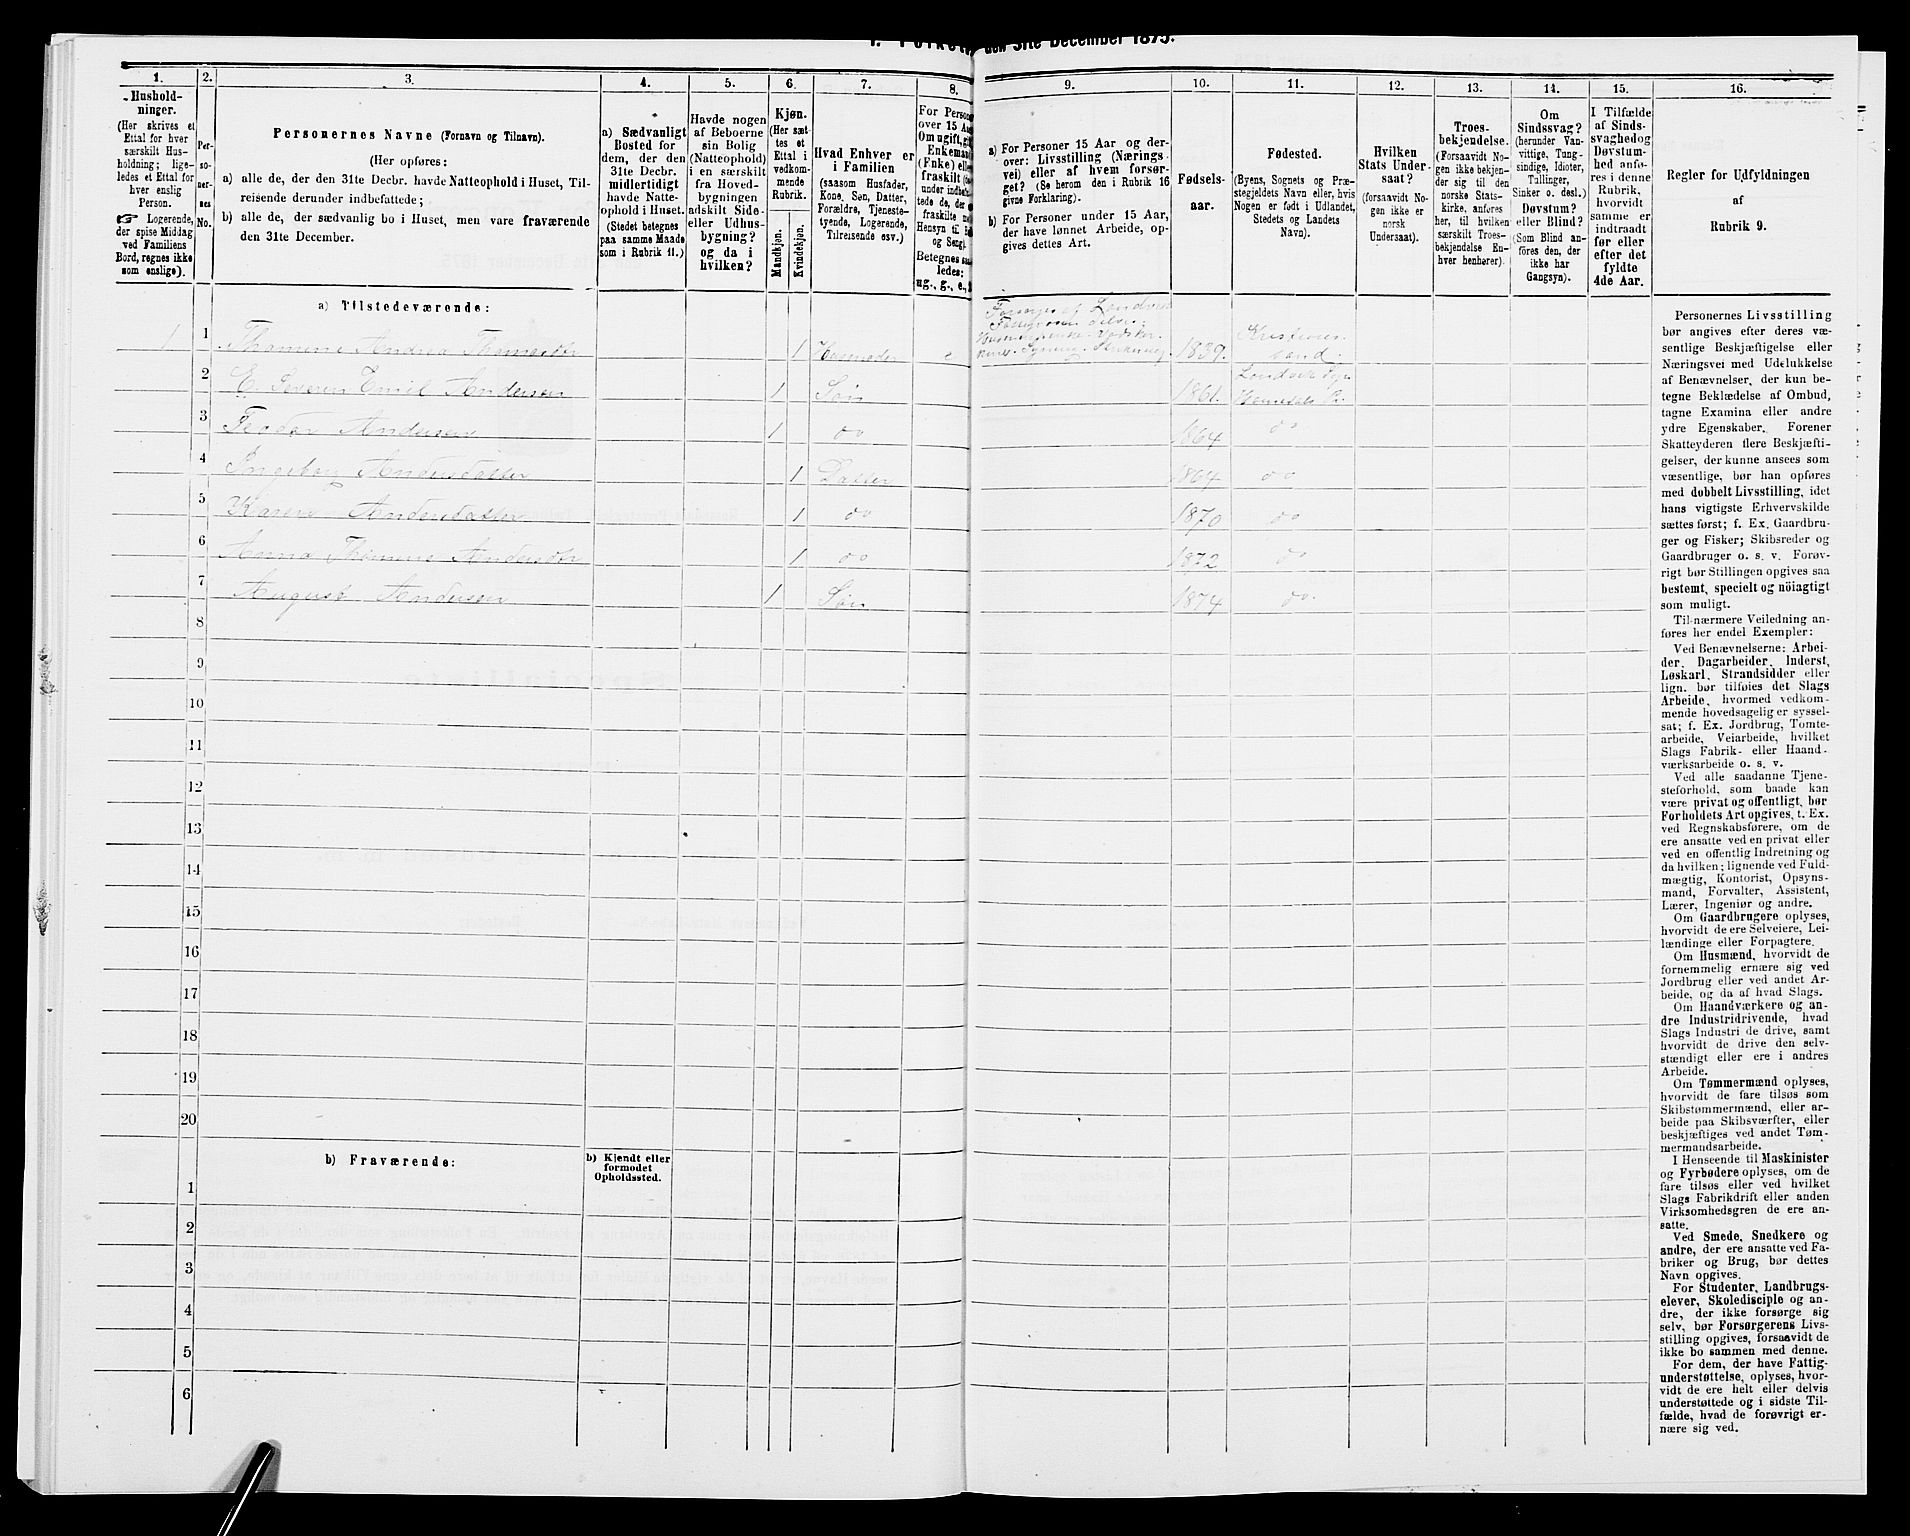 den 31te December 1875.
1.
Hushold-
ninger.
(Her skrives et
Ettal for hver
særskilt Hus-
holdning; lige-
ledes et Ettal for
hver enslig
Person.
☞ Logerende,
der spise Middag
ved Familiens
Bord, regnes ikke
som enslige).
2.
Per-
so-
ner-
nes
No.
3.
Personernes Navne (Fornavn og Tilnavn).
(Her opføres:
a) alle de, der den 31te Decbr. havde Natteophold i Huset, Til-
reisende derunder indbefattede;
b) alle de, der sædvanlig bo i Huset, men vare fraværende
den 31te December.
4.
a) Sædvanligt
Bosted for
dem, der den
31te Decbr.
midlertidigt
havde Natte-
ophold i Huset.
(Stedet betegnes
paa samme Maade
som i Rubrik 11.)
5.
Havde nogen
af Beboerne
sin Bolig
(Natteophold)
i en særskilt
fra Hoved-
bygningen
adskilt Side-
eller Udhus-
bygning?
og da i
hvilken?
6.
Kjøn.
(Her sæt-
tes et
Ettal i
vedkom-
mende
Rubrik.
Mandkjøn.
Kvindekjøn.
7.
Hvad Enhver er
i Familien
(saasom Husfader,
Kone, Søn, Datter,
Forældre, Tjeneste-
tyende, Logerende,
Tilreisende osv.)
8.
For Person
over 15 Aa
Om ugift, gi
Enkeman
(Enke) elle
fraskilt
under indbef
tede de, der
fraskilte
Hensyn til
og Seng).
Betegnes saa
ledes:
ug., g., e.,
9.
a) For Personer 15 Aar og der-
over: Livsstilling (Nærings-
vei) eller af hvem forsør-
get? (Se herom den i Rubrik 16
givne Forklaring).
b) For Personer under 15 Aar,
der have lønnet Arbeide, op-
gives dettes Art.
10.
Fødsels-
aar.
11.
Fødested.
(Byens, Sognets og Præ-
stegjeldets Navn eller, hvis
Nogen er født i Udlandet,
Stedets og Landets
Navn).
12.
Hvilken
Stats Under-
saat?
(forsaavidt No-
gen ikke er
norsk
Undersaat).
13.
Troes-
bekjendelse.
(Forsaavidt No-
gen ikke bekjen-
der sig til den
norske Stats-
kirke, anføres
her, til hvilken
særskilt Troes-
bekjendelse En-
hver henhører).
14.
Om
Sindssvag?
(herunder Van-
vittige, Tung-
sindige, Idioter,
Tullinger,
Sinker o. desl.)
Døvstum?
eller Blind?
(Som Blind an-
føres den, der
ikke har
Gangsyn).
15.
I Tilfælde
af Sinds-
svaghed og
Døvstum-
hed anfø-
res i denne
Rubrik,
hvorvidt
samme er
indtraadt
før eller
efter det
fyldte
4de Aar.
16.
Regler for Udfyldningen
af
Rubrik 9.
a) Tilstedeværende:
1 1 Thomine Andrea Thomasdtr 1 Husmoder e Forsørges af Landvik
Fattigvæsen
1839. Kristians-
sand.
2 E. Severin Emil Andersen 1 Søn 1861. Landvik
3 Teodor Andersen 1 do 1864 do
4 Ingebor Andersdatter 1 Datter 1864 do
5 Karen Andersdatter 1 do 1870 do
6 Anna Thomine Andersdtr 1 do 1872 do
7 August Andersen 1 Søn 1874 do
8
9
10
11
12
13
14
15
16
17
18
19
20
b) Fraværende:
b) Kjendt eller
formodet
Opholdssted.
1
2
3
4
5
6
Personernes Livsstilling
bør angives efter deres væ-
sentlige Beskjæftigelse eller
Næringsvei med Udelukkelse
af Benævnelser, der kun be-
tegne Beklædelse af Ombud,
tagne Examina eller andre
ydre Egenskaber. Forener
Skatteyderen flere Beskjæfti-
gelser, der kunne ansees som
væsentlige, bør han opføres
med dobbelt Livsstilling, idet
hans vigtigste Erhvervskilde
sættes først; f. Ex. Gaardbru-
ger og Fisker; Skibsreder og
Gaardbruger o. s. v. Forøv-
rigt bør Stillingen opgives saa
bestemt, specielt og nöiagtigt
som muligt.
Til nærmere Veiledning an-
føres her endel Exempler:
Ved Benævnelserne: Arbei-
der, Dagarbeider, Inderst,
Løskarl, Strandsidder eller
lign. bør tilføies det Slags
Arbeide, hvormed vedkom-
mende hovedsagelig er syssel-
sat; f. Ex. Jordbrug, Tomte-
arbeide, Veiarbeide, hvilket
Slags Fabrik- eller Haand-
værksarbeide o. s. v.
Ved alle saadanne Tjene-
steforhold, som baade kan
være privat og offentligt, bør
Forholdets Art opgives, t. Ex.
ved Regnskabsførere, om de
ere ansatte ved en privat eller
ved en offentlig Indretning og
da hvilken; lignende ved Fuld-
mægtig, Kontorist, Opsyns-
mand, Forvalter, Assistent,
Lærer, Ingeniør og andre.
Om Gaardbrugere oplyses,
hvorvidt de ere Selveiere, Lei-
lændinge eller Forpagtere.
Om Husmænd, hvorvidt de
fornemmelig ernære sig ved
Jordbrug eller ved andet Ar-
beide, og da af hvad Slags.
Om Haandværkere og an-
dre Industridrivende, hvad
Slags Industri de drive, samt
hvorvidt de drive den selv-
stændigt eller ere i andres
Arbeide.
Om Tømmermænd oplyses,
hvorvidt de fare tilsøs som
Skibstømmermænd, eller ar-
beide paa Skibsværfter, eller
beskjæftiges ved andet Tøm-
mermandsarbeide.
I Henseende til Maskinister
og Fyrbødere oplyses, om de
fare tilsøs eller ved hvilket
Slags Fabrikdrift eller anden
Virksomhedsgren de ere an-
satte.
Ved Smede, Snedkere og
andre, der ere ansatte ved Fa-
briker og Brug, bør dettes
Navn opgives.
For Studenter, Landbrugs-
elever, Skoledisciple og an-
dre, der ikke forsørge sig
selv, bør Forsørgerens Livs-
stilling opgives, forsaavidt de
ikke bo sammen med denne.
For dem, der have Fattig-
understøttelse, oplyses, hvor-
vidt de ere helt eller delvis
understøttede og i sidste Til-
fælde, hvad de forøvrigt er-
nære sig ved.